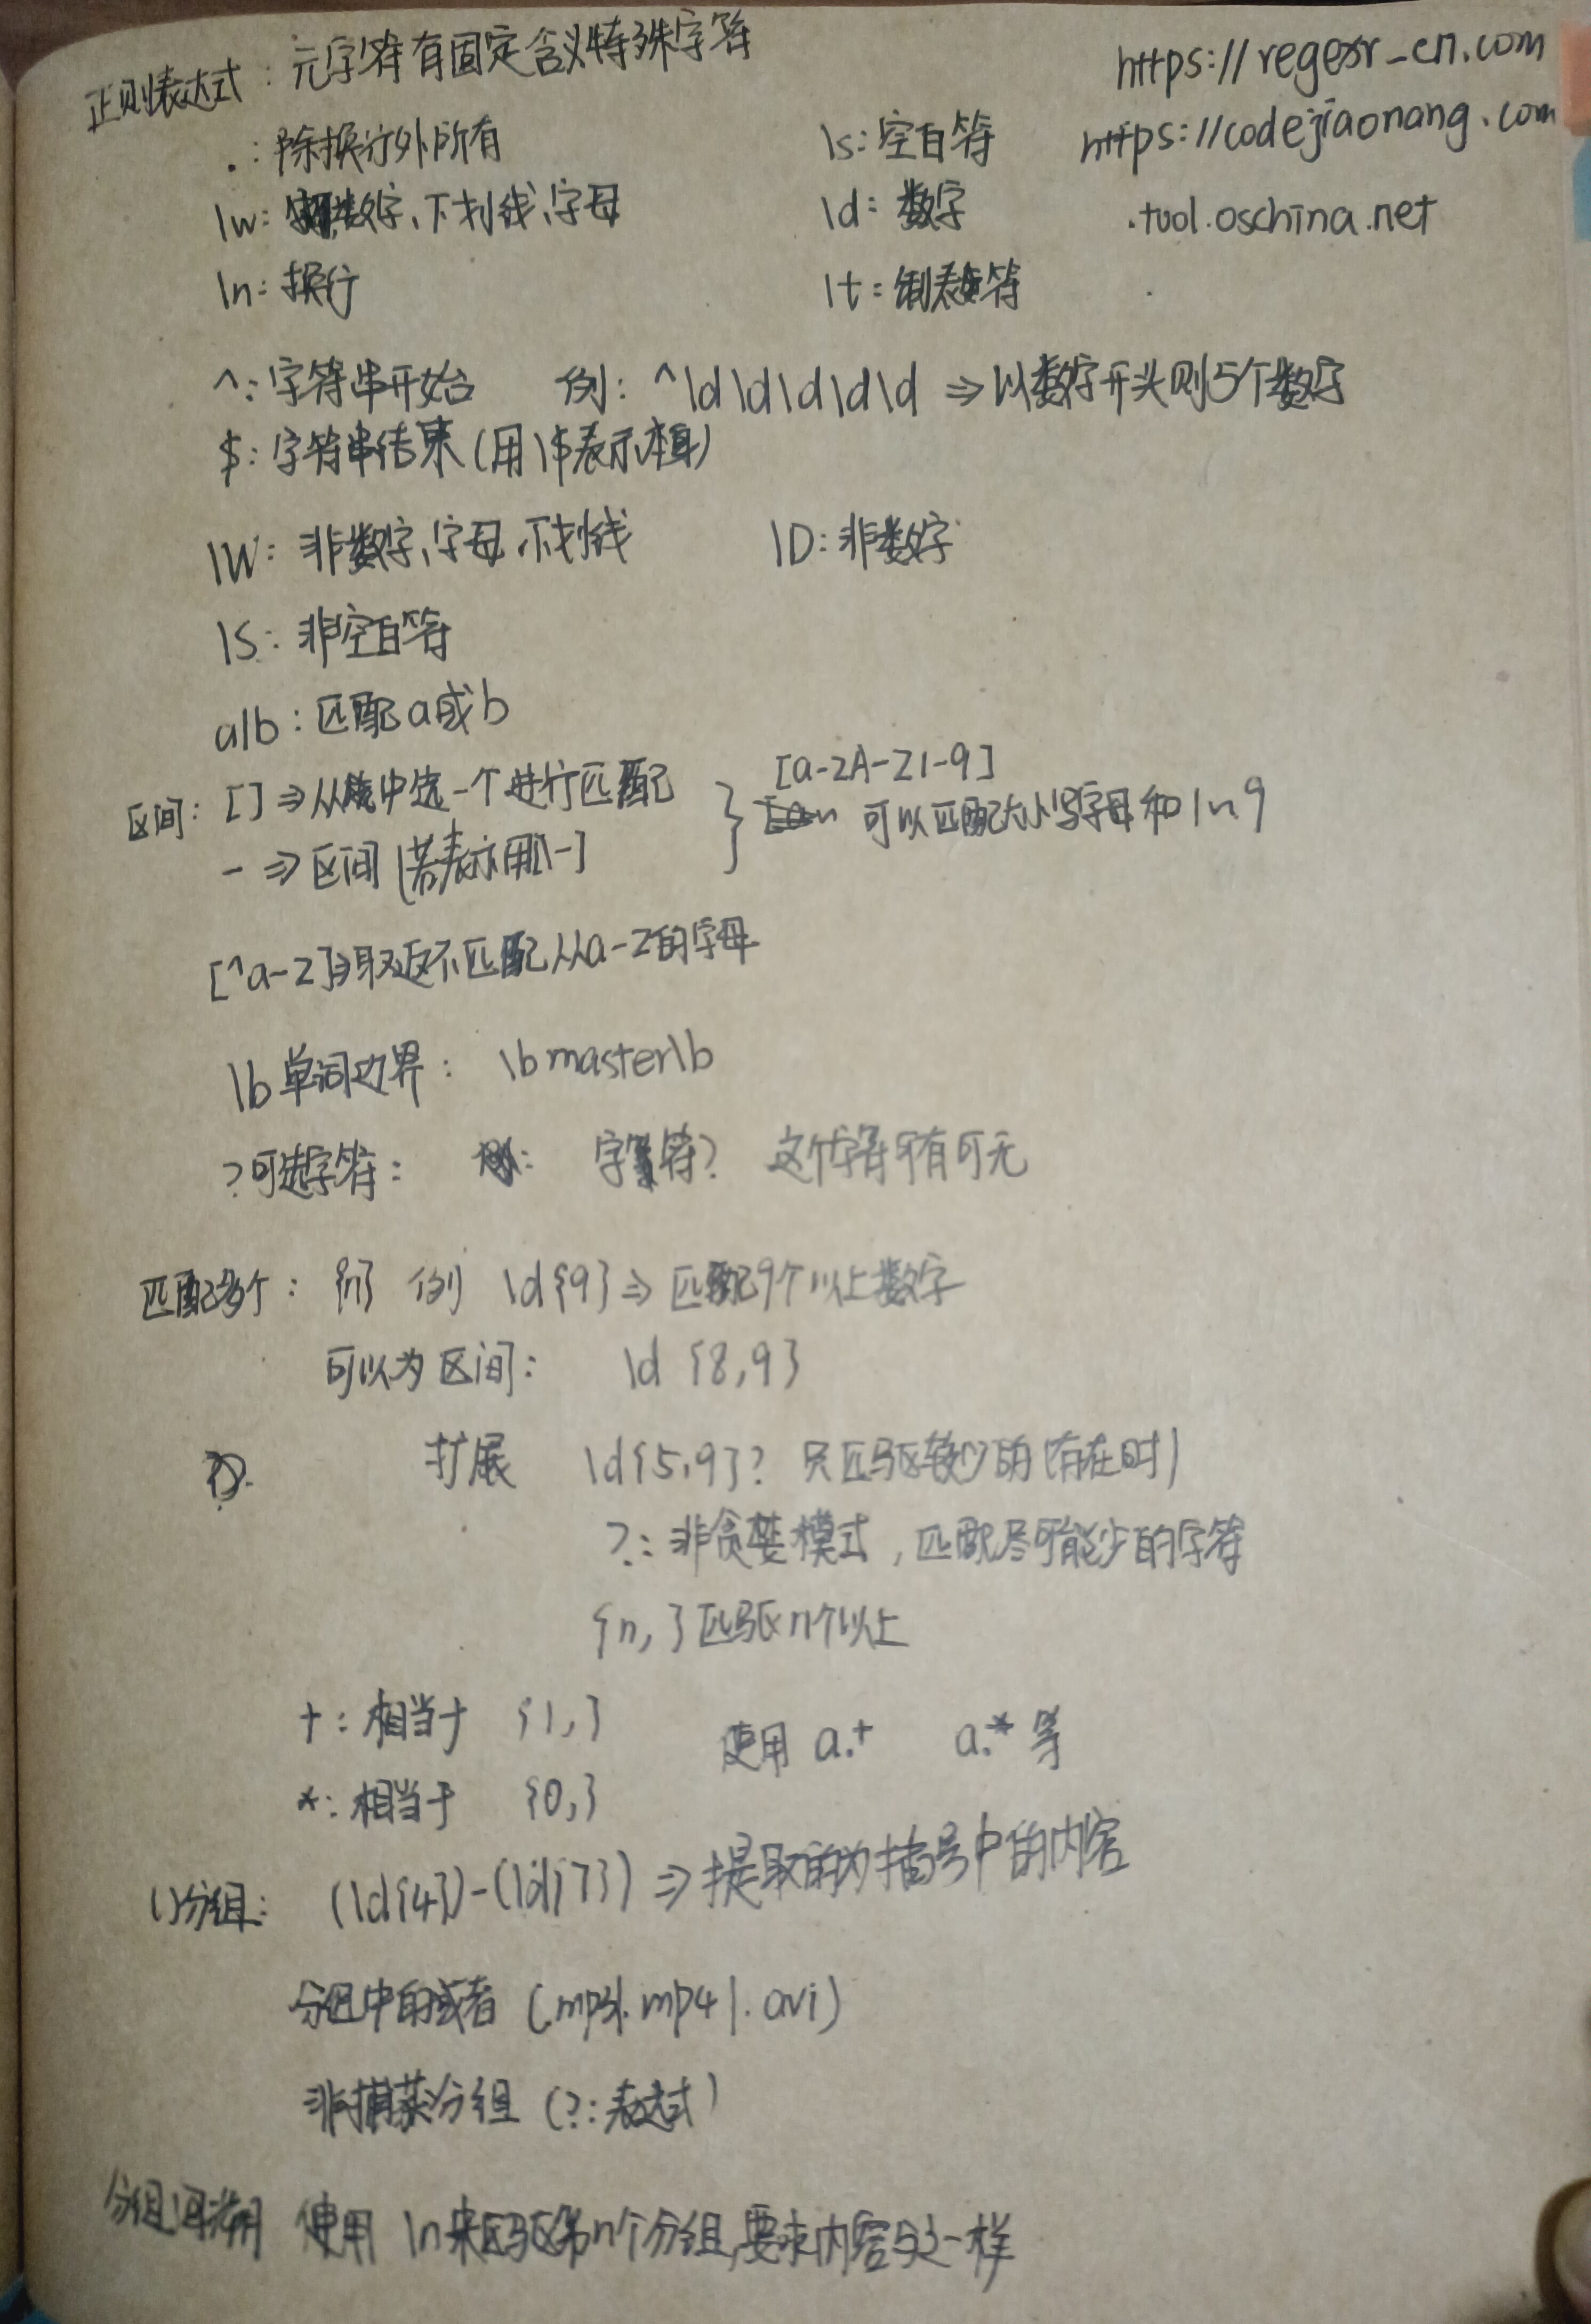 正则表达式：元字符有固定含义特殊字符
https://regexr-cn.com
https://codejiaonang.com
.tool.oschina.net
.：除换行外所有
\s：空白符
\w：数字、下划线、字母
\d：数字
\n：换行
\t：制表符
^：字符串开始 例：^\d\d\d\d\d ⇒以数字开头则5个数字
$：字符串结束(用\$表示本身)
\W：非数字、字母、下划线
\D：非数字
\S：非空白符
a|b：匹配a或b
区间：[] ⇒从中选一个进行匹配
- ⇒区间[若表示用\-]
[a-zA-Z1-9]
可以匹配大小写字母和1~9
[^a-z]⇒取返不匹配从a-z的字母
\b单词边界：\bmaster\b
?可选字符：例：字符? 这个字符可有可无
匹配多个：{n} 例 \d{9}⇒匹配9个以上数字
可以为区间：\d {8,9}
扩展 \d{5,9}? 只匹配较少的(存在时)
?：非贪婪模式，匹配尽可能少的字符
{n, }匹配n个以上
+：相当于 {1,}
使用 a.+ a.* 等
*：相当于 {0,}
()分组：(\d{4})-(\d{7}) ⇒提取的为括号中的内容
分组中的或者 (.mp3|.mp4|.avi)
非捕获分组 (?:表达式)
分组回溯 使用 \n来匹配第n个分组,要求内容与之一样